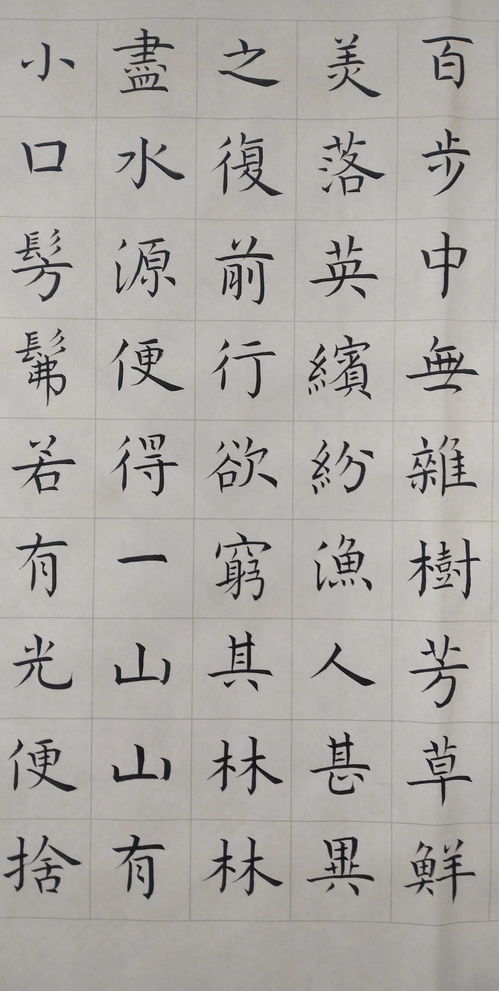 百步中無雜樹芳草鮮
美落英繽紛漁人甚異
之復前行欲窮其林林
盡水源便得一山山有
小口髣髴若有光便捨